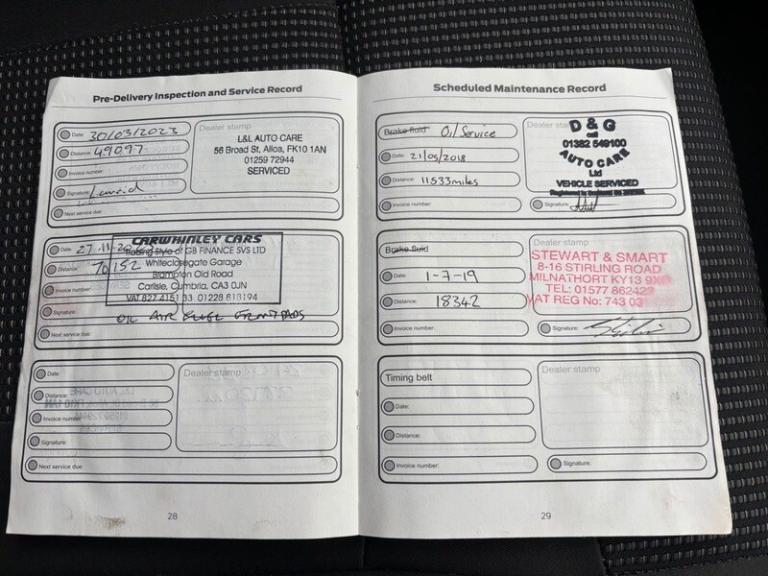 Pre-Delivery Inspection and Service Record
Date: 30/03/2023
Distance: 49097
Invoice number:
Signature:
Next service due:
Dealer stamp
L&L AUTO CARE
56 Broad St, Alloa, FK10 1AN
01259 72944
SERVICED
Date: 27.11.
Distance: 70152
Invoice number:
Signature:
Next service due:
CARWHINLEY CARS
Trading style of GB FINANCE SVS LTD
Whiteclosegate Garage
Brampton Old Road
Carlisle, Cumbria, CA3 0JN
VAT 827 4151 33 01228 818194
OIL AIR FUEL FRONT PADS
Date:
Distance:
Invoice number:
Signature:
Next service due:
Dealer stamp
28
Scheduled Maintenance Record
Brake fluid Oil Service
Date: 21/05/2018
Distance: 11533miles
Invoice number:
Dealer stamp
D & G
call
01382 549100
AUTO CARE
Ltd
VEHICLE SERVICED
Signature:
Brake fluid
Date: 1-7-19
Distance: 18342
Invoice number:
Dealer stamp
STEWART & SMART
8-16 STIRLING ROAD
MILNATHORT KY13 9X
TEL: 01577 862423
VAT REG No: 743 03
Signature:
Timing belt
Date:
Distance:
Invoice number:
Dealer stamp
Signature:
29